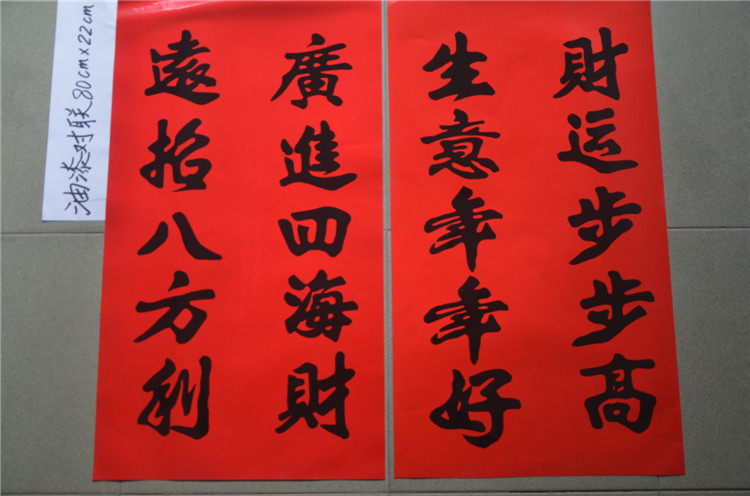 油漆对联80cm×22cm
遠招八方利
廣進四海財
生意年年好
財运步步高